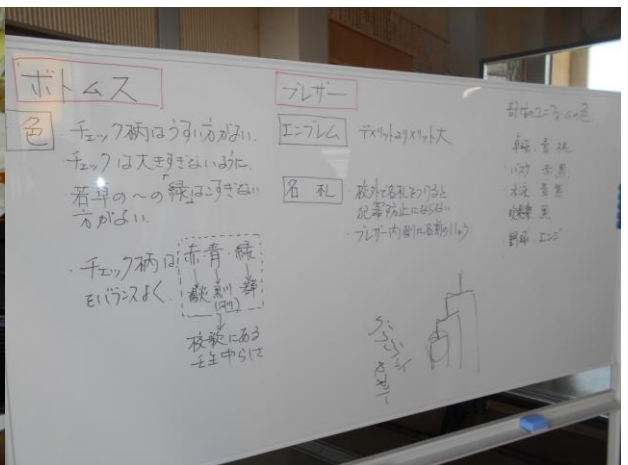 ボトムス
色
・チェック柄はうすい方がよい.
チェックは大きすぎないように
若草の～の「緑」はこすぎない
方がよい.
・チェック柄は
をバランスよく
赤・青・緑
校歌にある
壬生中らしさ
ブレザー
エンブレム
デメリットよりメリット大
名札
・校外で名札をつけると
犯罪防止にならない
・ブレザー内側に名前のししゅう
部活のユニフォームの色
卓球 青 桃
バスケ 赤 黒
水泳 青 黒
野球 エンジ